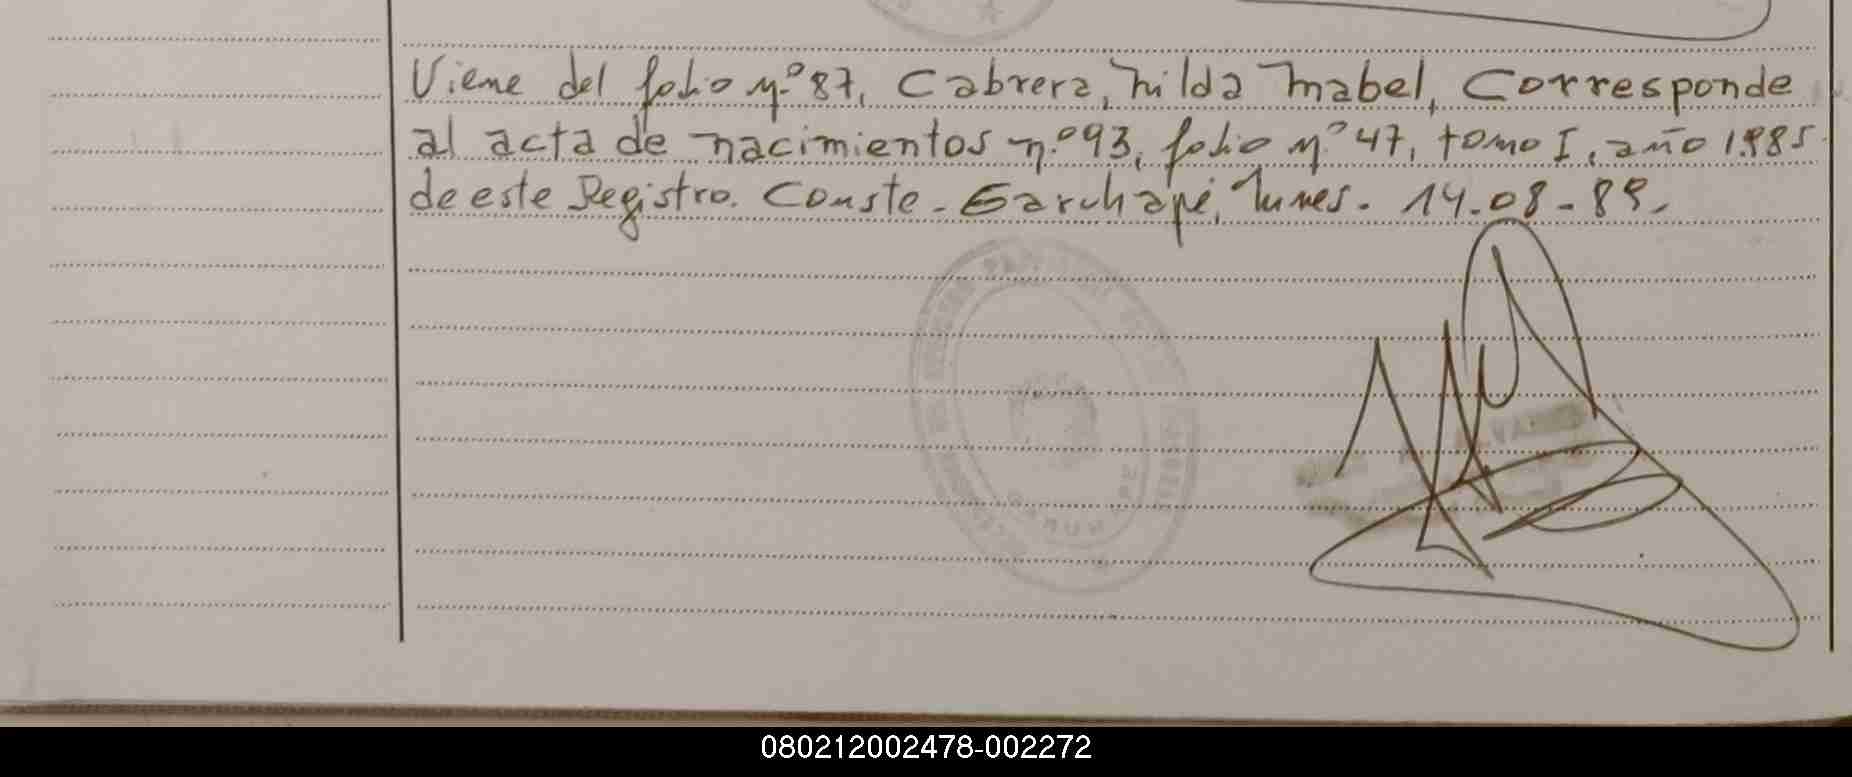 Viene del folio nº 87, Cabrera, Nilda Mabel, Corresponde
al acta de nacimientos n.º 93, folio nº 47, tomo I, año 1.985
de este Registro. Conste - Garuhapé, lunes. 14-08-89.
080212002478-002272